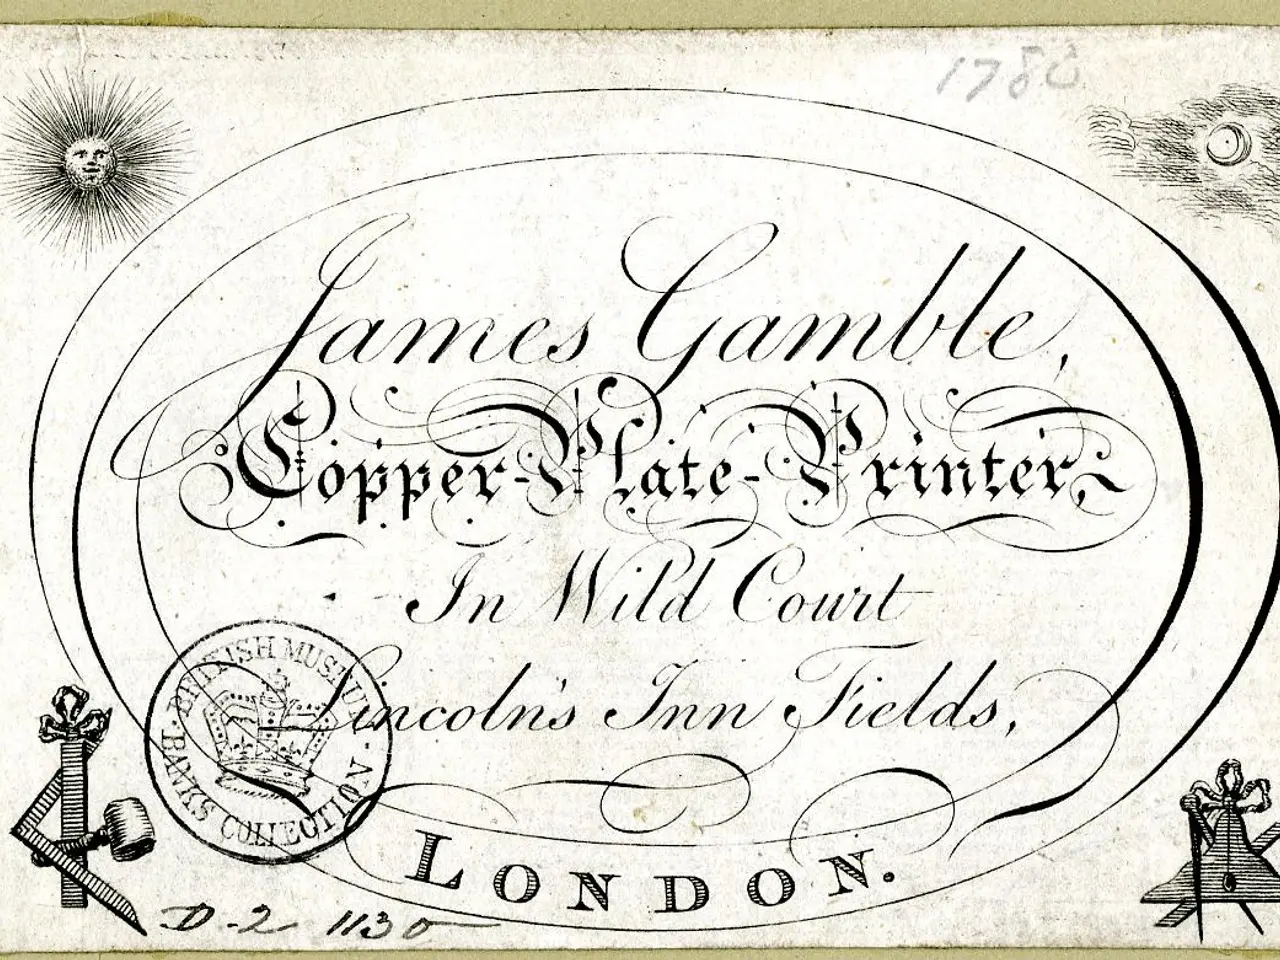 1788
James Gamble,
Copper-Plate-Printer
In Wild Court
Lincoln's Inn Fields,
LONDON.
BRITISH MUSEUM
BANKS COLLECTION
D-2 1130